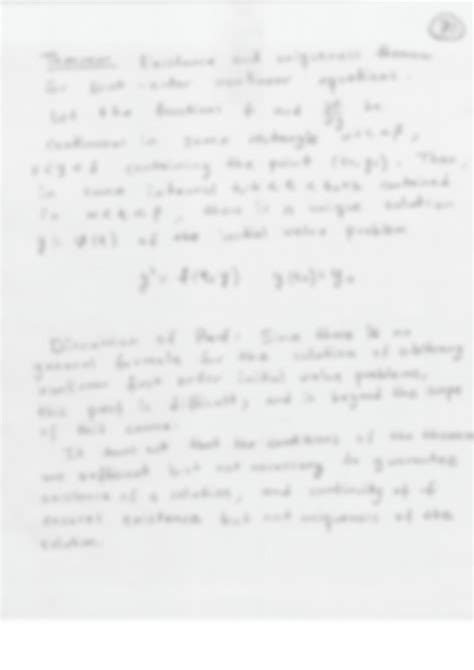 Theorem. Existence and uniqueness theorem
for first-order nonlinear equations.
Let the functions f and ∂f/∂y be
continuous in some rectangle α < t < β,
γ < y < δ containing the point (t₀, y₀). Then,
in some interval t₀-h < t < t₀+h contained
in α < t < β, there is a unique solution
y = φ(t) of the initial value problem
y' = f(t, y) y(t₀) = y₀
Discussion of Proof: Since there is no
general formula for the solution of arbitrary
nonlinear first order initial value problems,
this proof is difficult, and is beyond the scope
of this course.
It turns out that the conditions of the theorem
are sufficient but not necessary to guarantee
existence of a solution, and continuity of f
ensures existence but not uniqueness of the
solution.